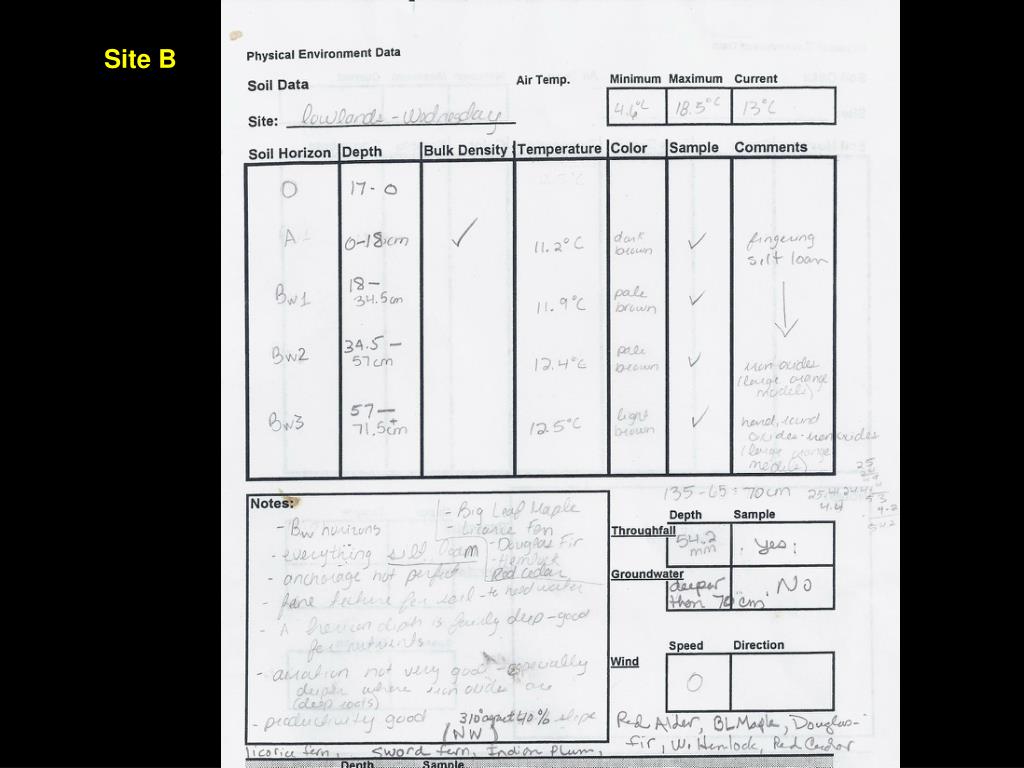 Site B
Physical Environment Data
Soil Data Air Temp. Minimum Maximum Current
Site: lowlands - Wednesday 4.6°C 18.5°C 13°C
Soil Horizon Depth Bulk Density Temperature Color Sample Comments
O 17-0
A 0-18cm ✓ 11.2°C dark brown ✓ fingering silt loam
Bw1 18-34.5cm 11.9°C pale brown ✓
Bw2 34.5-57cm 12.4°C pale brown ✓ iron oxides (large orange
Bw3 57-71.5cm 12.5°C light brown ✓ oxides-iron oxides (large orange
135-65=70cm
Notes:
- Bw horizons
- everything silt loam
- anchorage not perfect
- fine texture for soil - to hold water
- A horizon depth is fairly deep - good
for nutrients
- aeration not very good - especially
deeper where iron oxides are
(deep roots)
- productivity good 310° aspect 40% slope
(NW)
- Big Leaf Maple
- Licorice Fern
- Douglas Fir
- Hemlock
Red Cedar
Depth Sample
Throughfall 54.2 mm yes:
Groundwater deeper than 70cm. No
Speed Direction
Wind 0
Red Alder, BL Maple, Douglas-
fir, W. Hemlock, Red Cedar
licorice fern, sword fern, Indian Plum,
Depth Sample